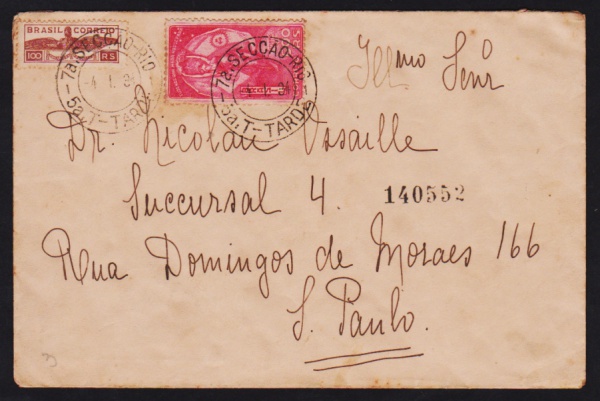 BRASIL CORREIO
100 RS
7a. SECCÃO-RIO
-4.1.3
5a.T-TARDE
7a. SECCÃO-RIO
5a.T-TARDE
Illmo Sñr
Dr. Nicolau
Succursal 4.
140552
Rua Domingos de Moraes 166
S. Paulo.